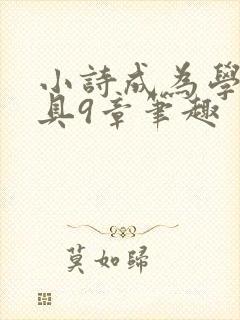 小詩成為學
具9章筆趣
莫如歸